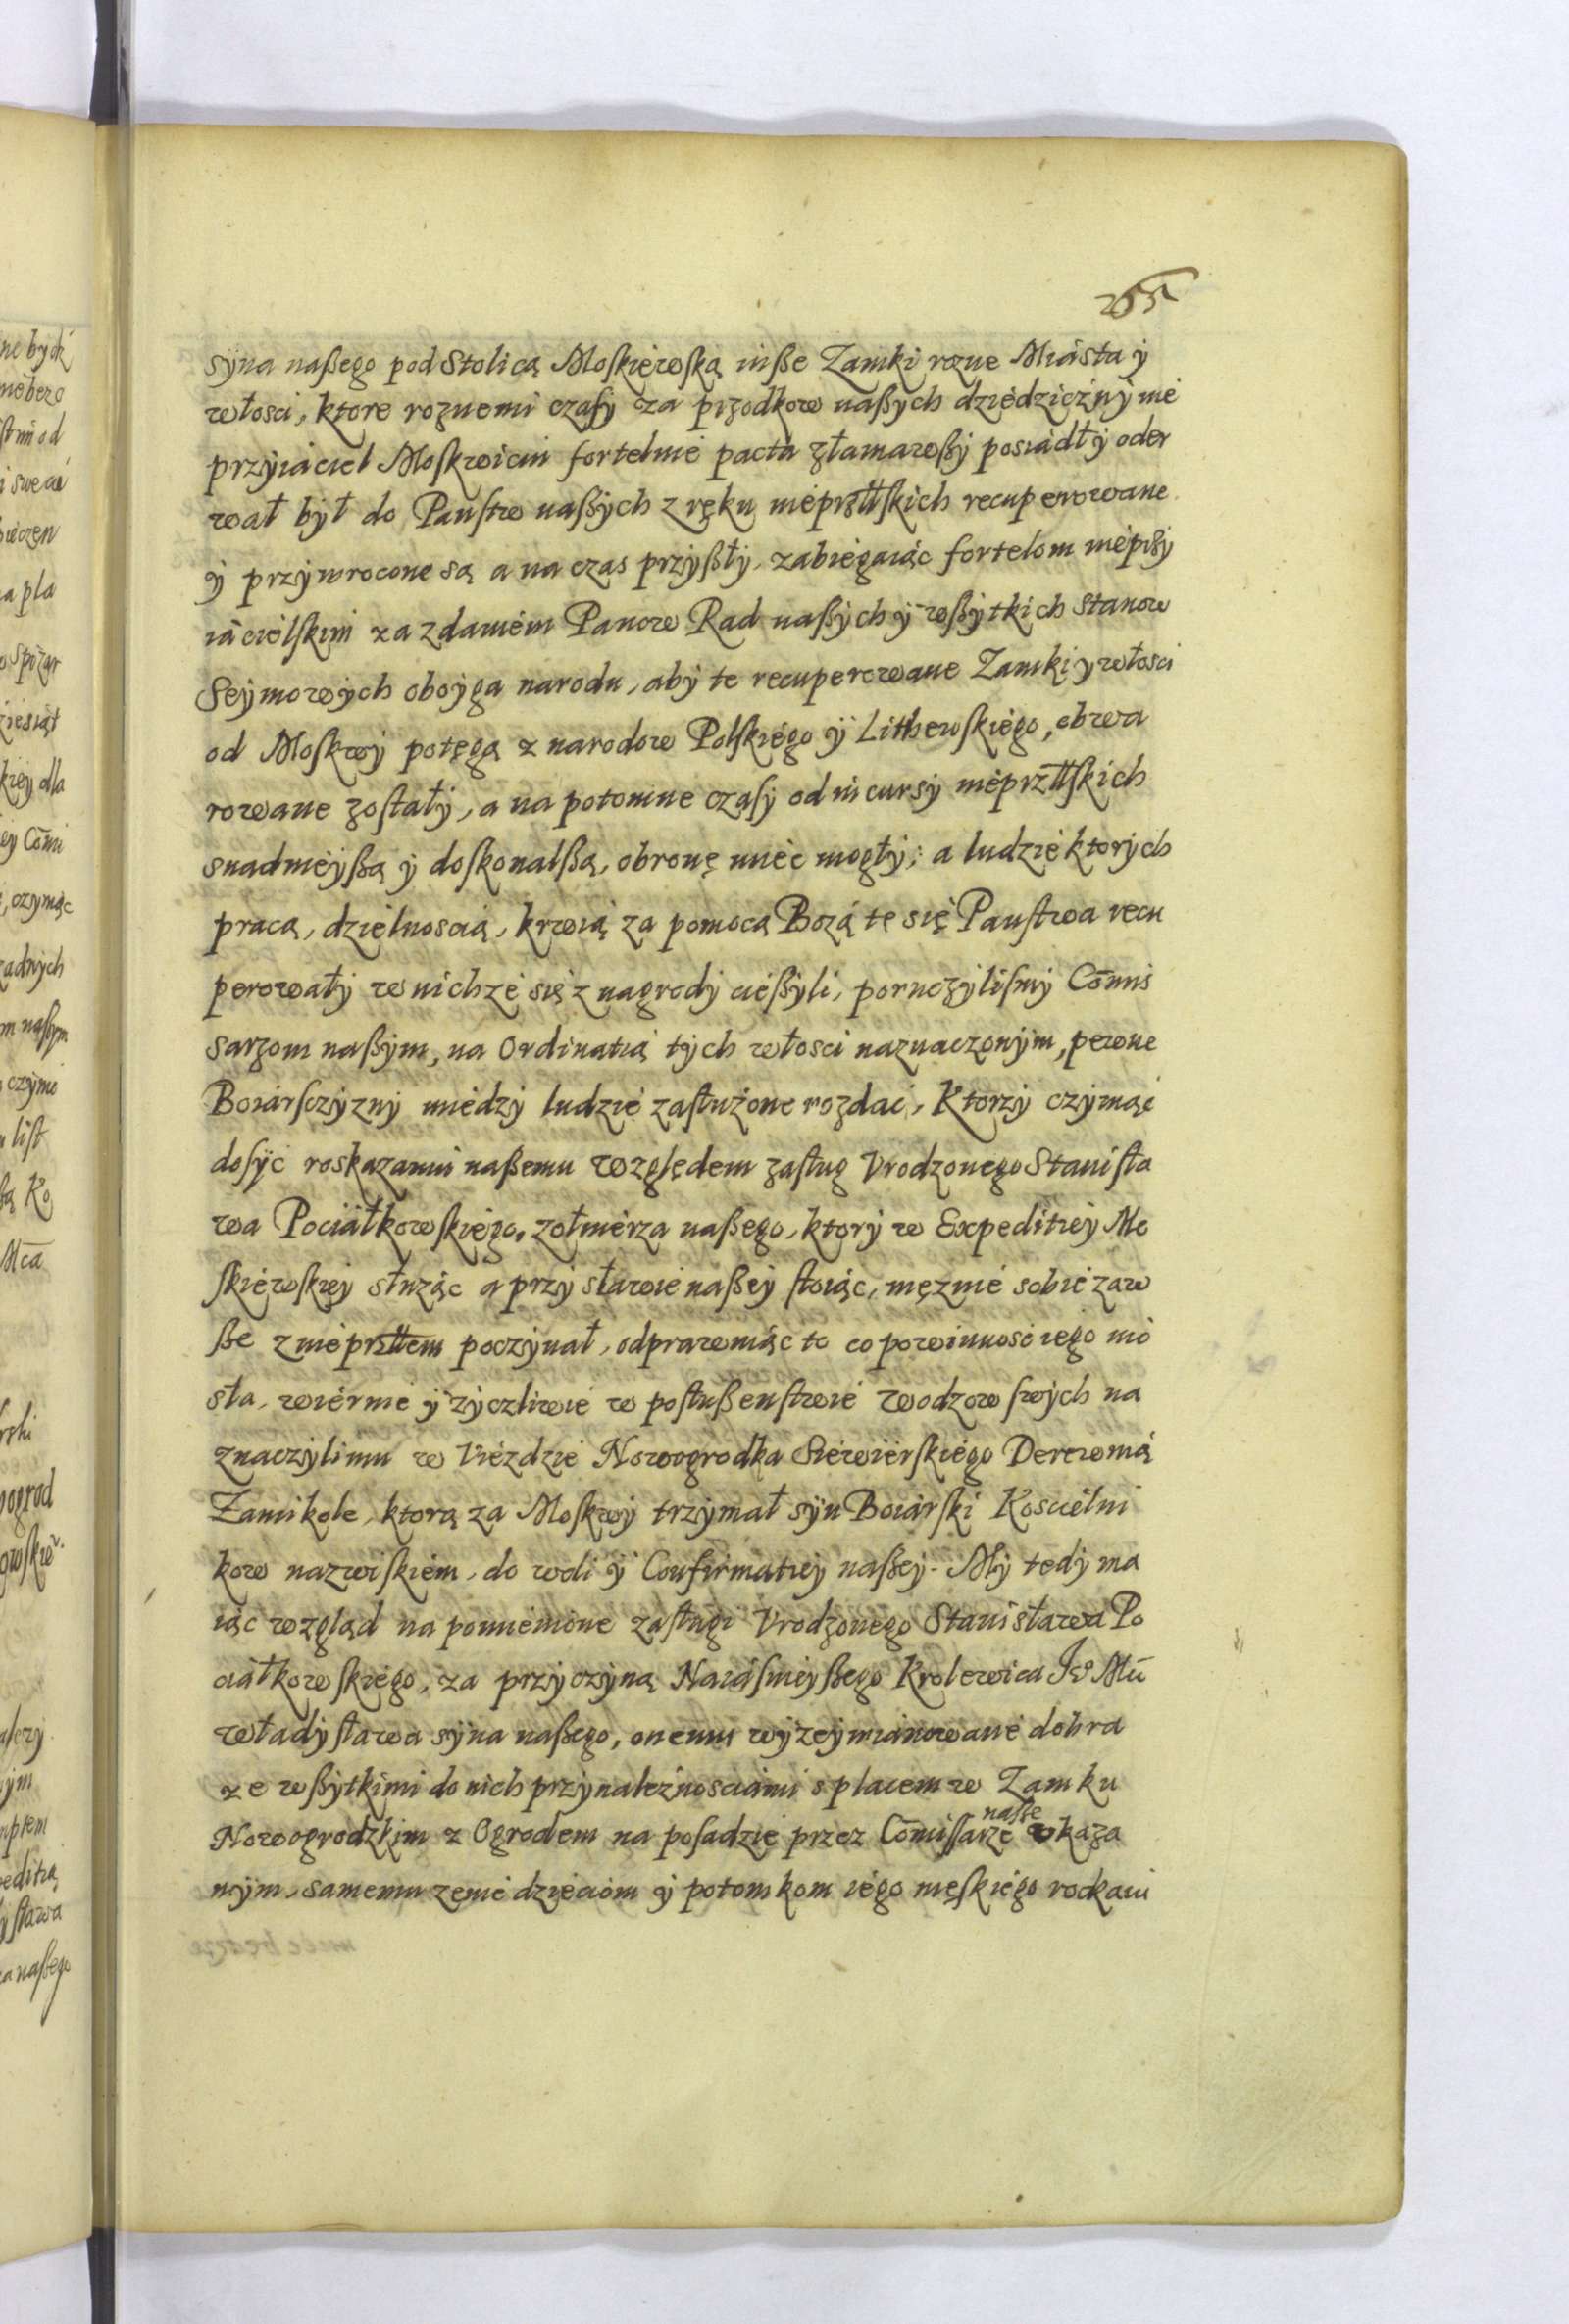 255
syna naßego pod Stolicą Moskiewską inße Zamki rozne Miasta y
włosci, ktore roznemi czasy za przodkow naßych dziedziczny nie
przyiaciel Moskwicin fortelnie pacta złamawßy posiadły oder
wał był do Panstw naßych z ręku nieprzłłskich recuperowane
y przywrocone są a na czas przyßły, zabiegaiąc fortelom nieprzy
iacielskim za zdaniem Panow Rad naßych y wßytkich Stanow
Seymowych oboyga narodu, aby te recuperowane Zamki y włosci
od Moskwy potęgą z narodow Polskiego y Lithewskiego, obwa
rowane zostały, a na potomne czasy od incursy nieprzłłskich
snadnieyßą y doskonalßą, obronę mieć mogły; a ludzie ktorych
pracą, dzielnoscią, krwią za pomocą Bozą te się Panstwa recu
perowały w nichze się z nagrody cießyli, poruczylismy Com̄is
sarzom naßym, na Ordinatią tych włosci naznaczonym, pewne
Boiarsczyzny miedzy ludzie zasłużone rozdać, Ktorzy czyniąc
dosyć roskazaniu naßemu względem zasług Vrodzonego Stanisła
wa Pociátkowskiego, zołnierza naßego, ktory w Expeditiey Mo
skiewskiey słuząc a przy sławie naßey stoiąc, męznie sobie zaw
ße z nieprzłłem poczynał, odprawuiąc to co powinnosc iego nio
sła, wiernie y zyczliwie w posłußenstwie Wodzow swych na
znaczyli mu w Viezdzie Nowogrodka Siewierskiego Derewnią
Zamikole, ktorą za Moskwy trzymał syn Boiarski Koscielni
kow nazwiskiem, do woli y Confirmatiey naßey. My tedy ma
iąc wzgląd na pomienione zasługi Vrodzonego Stanisława Po
ciatkowskiego, za przyczyną Naiasnieyßego Krolewica Je° Mći
Władysława syna naßego, onemu wyzeymianowane dobra
ze wßytkimi do nich przynależnosciami s placem w Zamku
Nowogrodzkim z Ogrodem na posadzie przez Com̄issarze naße vkaza
nym, samemu zenie dzieciom y potomkom iego męskiego rodzaiu